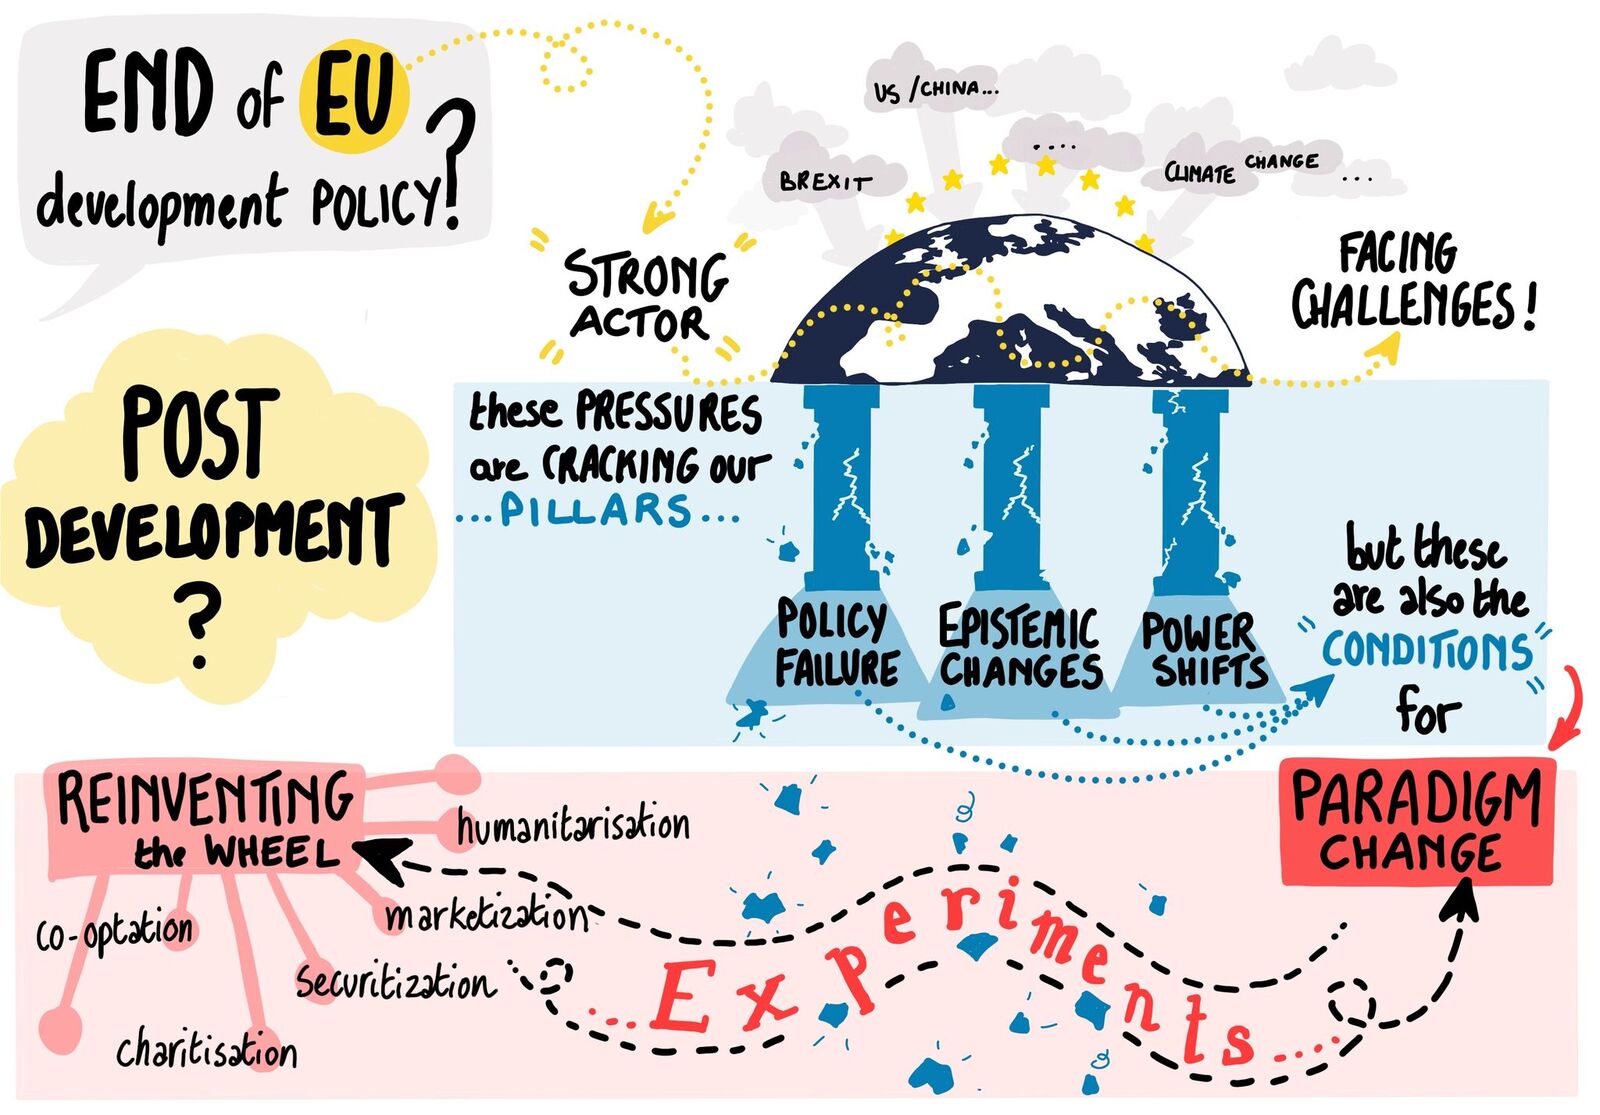 END of EU
development POLICY?
STRONG
ACTOR
US / CHINA...
....
BREXIT
CLIMATE CHANGE
...
FACING
CHALLENGES!
POST
DEVELOPMENT
?
these PRESSURES
are CRACKING our
...PILLARS...
POLICY
FAILURE
EPISTEMIC
CHANGES
POWER
SHIFTS
but these
are also the
"CONDITIONS"
for
PARADIGM
CHANGE
REINVENTING
the WHEEL
humanitarisation
marketization
co-optation
securitization
charitisation
...Experiments....